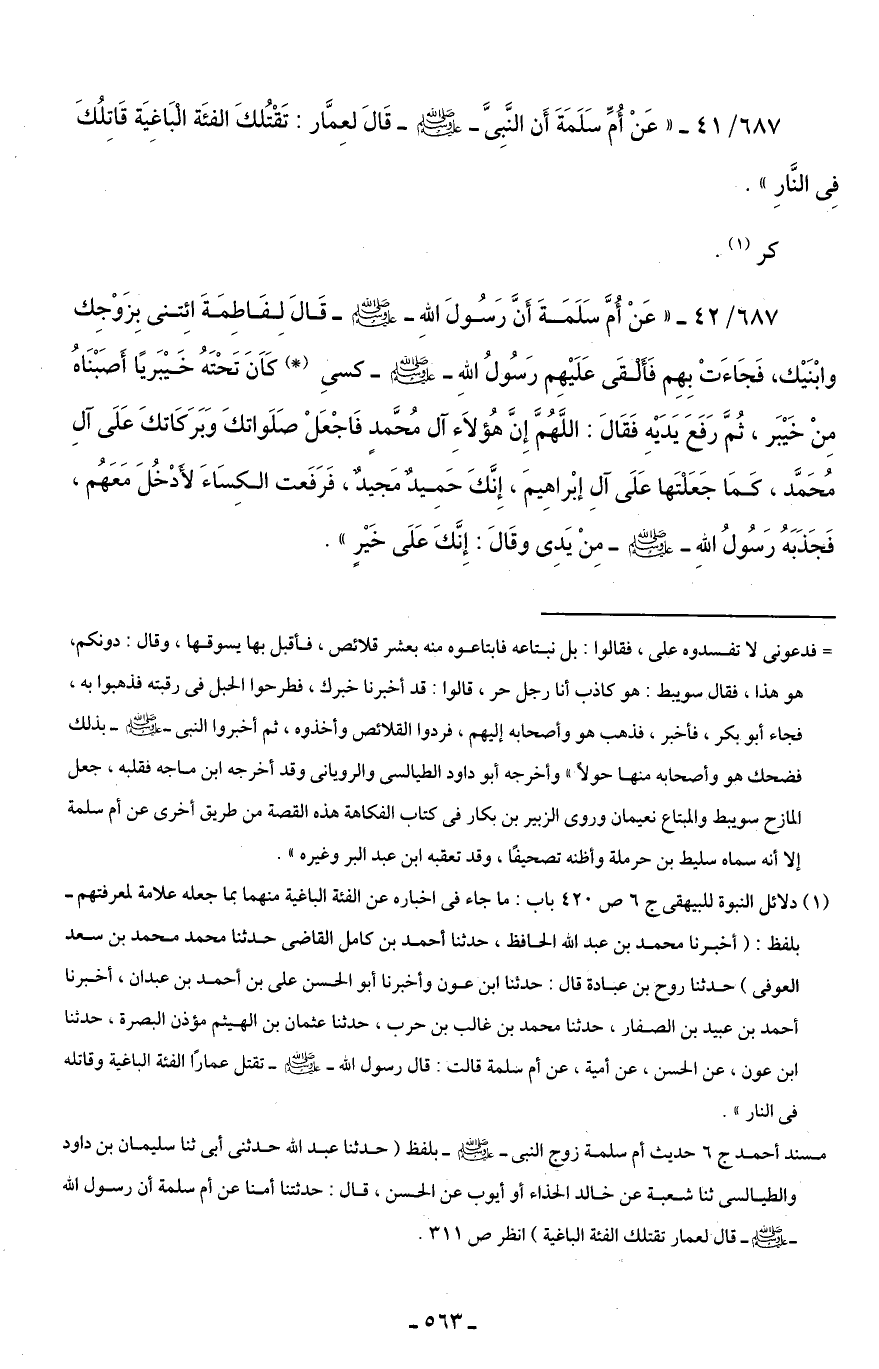 ٦٨٧/ ٤١ ـ « عَنْ أُمِّ سَلَمَةَ أَن النَّبِىَّ ـ ﷺ ـ قَالَ لعِمَّار : تَقْتُلكَ الفئَة الْبَاغِيَة قَاتِلُكَ
فِى النَّارِ » .
كر (١) .
٦٨٧/ ٤٢ ـ « عَنْ أُمَّ سَلَمَــة أَنَّ رَسُـولَ اللهِ ـ ﷺ ـ قَـالَ لِـفَـاطِمَـةَ ائتـنـى بِزَوْجِك
وابْنَيْك، فَجَاءَتْ بِهِم فَأَلْـقَى عَلَيْهِم رَسُولُ اللهِ ـ ﷺ ـ كسى (*) كَانَ تَحْتَهُ خَـيْبَريًا أَصَبْنَاهُ
مِنْ خَيْبَر ، ثُمَّ رَفَعَ يَدَيْهِ فَقَالَ : اللَّهُمَّ إِنَّ هؤُلاَءِ آل مُحَّمد فَاجْعَلْ صَلَواتكَ وَبَرَكَاتكَ عَلَى آلِ
مُحَمَّد ، كَـمَا جَعَلْتَها عَلَى آلِ إبْرَاهِيمَ ، إِنَّكَ حَمِـيدٌ مَجيدٌ ، فَرَفَعَت الـكِساءَ لأَدْخُلَ مَعَهُم ،
فَجَذَبَهُ رَسُولُ اللهِ ـ ﷺ ـ مِنْ يَدِى وقَالَ : إِنَّكَ عَلَى خَيْرٍ » .
= فدعونى لا تفـسدوه على ، فقالوا : بل نبـتاعه فابتاعـوه منه بعشر قلائص ، فـأقبل بها يسوقـها ، وقال : دونكم،
هو هذا ، فقال سويبط : هو كاذب أنا رجل حر ، قالوا : قد أخبرنا خبرك ، فطرحوا الحبل فى رقبته فذهبوا به ،
فجاء أبو بكر ، فأخبر ، فذهب هو وأصحابه إليهم ، فردوا القلائص وأخذوه ، ثم أخبروا النبى ـ ﷺ ـ بذلك
فضحك هو وأصحابه منهـا حولاً » وأخرجه أبو داود الطيالسى والرويانى وقد أخرجه ابن مـاجه فقلبه ، جعل
المازح سويبط والمبتاع نعيمان وروى الزبير بن بكار فى كتاب الفكاهة هذه القصة من طريق أخرى عن أم سلمة
إلا أنه سماه سليط بن حرملة وأظنه تصحيفًا ، وقد تعقبه ابن عبد البر وغيره » .
(١) دلائل النبوة للبيهقى ج ٦ ص ٤٢٠ باب : ما جاء فى اخباره عن الفئة الباغية منهما بما جعله علامة لمعرفتهم ـ
بلفظ : ( أخبـرنا محمـد بن عبد الله الحـافظ ، حدثنا أحمـد بن كامل القاضى حـدثنا محمد مـحمد بن سـعد
العوفى ) حـدثنا روح بن عبـادة قال : حدثنا ابن عـون وأخبرنا أبو الحـسن على بن أحمـد بن عبدان ، أخـبرنا
أحمد بن عبيد بن الصـفار ، حدثنا محمد بن غالب بن حرب ، حدثنا عثمان بن الهـيثم مؤذن البصرة ، حدثنا
ابن عون ، عن الحسن ، عن أمية ، عن أم سلمة قالت : قال رسول الله ـ ﷺ ـ تقتل عمارًا الفئة الباغية وقاتله
فى النار » .
مـسند أحمـد ج ٦ حديث أم سلمـة زوج النبى ـ ﷺ ـ بلفظ ( حـدثنا عبـد الله حدثنى أبى ثنا سليمـان بن داود
والطيـالسى ثنا شـعبـة عن خالد الحـذاء أو أيوب عن الحـسن ، قـال : حدثتنا أمـنا عن أم سلمـة أن رسـول الله
ـ ﷺ ـ قال لعمار تقتلك الفئة الباغية ) انظر ص ٣١١ .
ـ ٥٦٣ ـ